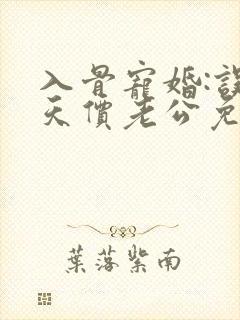 入骨寵婚:誤
天價老公免
葉落紫南